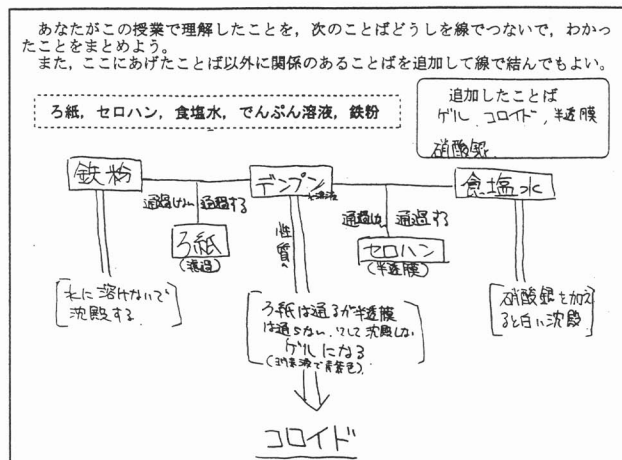 あなたがこの授業で理解したことを，次のことばどうしを線でつないで，わかっ
たことをまとめよう。
また，ここにあげたことば以外に関係のあることばを追加して線で結んでもよい。
ろ紙，セロハン，食塩水，でんぷん溶液，鉄粉
追加したことば
ゲル，コロイド，半透膜
硝酸銀
鉄粉
デンプン
食塩水
通過しない
通過する
通過しない
通過する
ろ紙
(濾過)
性質
セロハン
(半透膜)
水に溶けないで
沈殿する
ろ紙は通るが半透膜
は通らない。そして沈殿しない
ゲルになる
(ヨウ素液で青紫色)
硝酸銀を加え
ると白い沈殿
コロイド